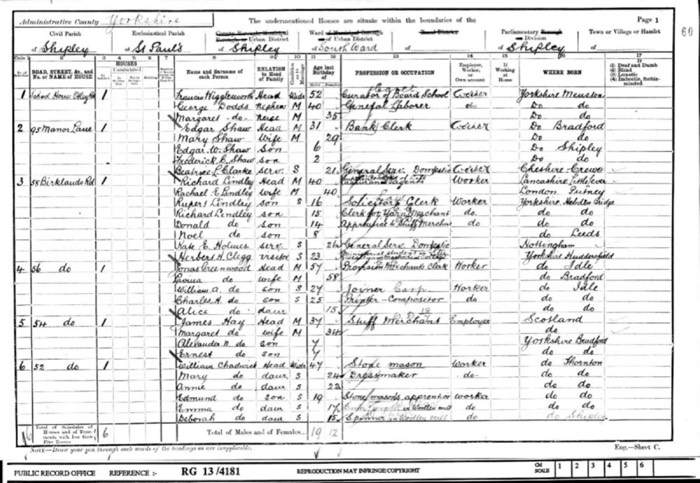 Administrative County Yorkshire The undermentioned Houses are situate within the boundaries of the Page 1
60
Civil Parish Ecclesiastical Parish County Borough, Municipal Borough or Urban District Ward of Municipal Borough or of Urban District Rural District Parliamentary Borough or Division Town or Village or Hamlet
of Shipley of St Paul's of Shipley of South Ward of of Shipley of
ROAD, STREET, &c., and No. or NAME of HOUSE HOUSES Name and Surname of each Person RELATION to Head of Family Age last Birthday of PROFESSION OR OCCUPATION Employer, Worker, or Own account If Working at Home WHERE BORN (1) Deaf and Dumb (2) Blind (3) Lunatic (4) Imbecile, feeble-minded
1 School House 1 Francis Wigglesworth Head Widr 52 Curator of Board School Worker Yorkshire Menston
George Dodds nephew M 40 General Laborer do Do do
Margaret do M 35 Do do
2 95 Manor Lane 1 Edgar Shaw Head M 31 Bank Clerk Worker Do Bradford
Mary Shaw Wife M 29 Do do
Edgar W. Shaw Son 6 Do Shipley
Frederick C. Shaw son 2 Do do
Beatrice P. Clarke serv. S 21 General Serv. Domestic Worker Cheshire Crewe
3 58 Birklands Rd 1 Richard Lindley Head M 40 Worker Lancashire
Rachael E Lindley wife M 40 London Putney
Rupert Lindley son S 16 Solicitors Clerk Worker Yorkshire Hebden Bridge
Richard Lindley son 15 Clerk for Yarn Merchant do do do
Donald do son 14 Apprentice to Stuff Merchant do do do
Noel do son 8 do Leeds
Kate E Holmes serv. S 26 General Serv. Domestic Nottingham
Herbert H. Clegg visitor S 23 Yorkshire Huddersfield
4 56 do 1 Jonas Greenwood Head M 57 Provision Merchants Clerk Worker do Idle
Louisa do wife M 58 do Bradford
William A. do son S 27 Joiner Carp. Worker do Idle
Charles H. do son S 25 Printer-Compositor do do do
Alice do daur 15 do do
5 54 do 1 James Hay Head M 37 Stuff Merchant Employer Scotland
Margaret do wife M 34 do
Alexander N. do son 7 Yorkshire Bradford
Ernest do son 4 do do
6 52 do 1 William Chadwick Head Widr 47 Stone mason Worker do Thornton
Mary do daur S 24 Dressmaker do do do
Annie do daur S 22 do do
Edmund do son S 19 Stone masons apprentice worker do do
Emma do daur S 17 do do do
Deborah do daur S 15 Spinner in Woollen mill do do Shipley
6 Total of Schedules of Houses and of Tenements with less than Five Rooms 6 Total of Males and of Females 19 12
NOTE—Draw your pen through such words of the headings as are inapplicable. Eng.—Sheet C.
PUBLIC RECORD OFFICE REFERENCE :- RG 13/4181 REPRODUCTION MAY INFRINGE COPYRIGHT CM SCALE 1 2 3 4 5 6